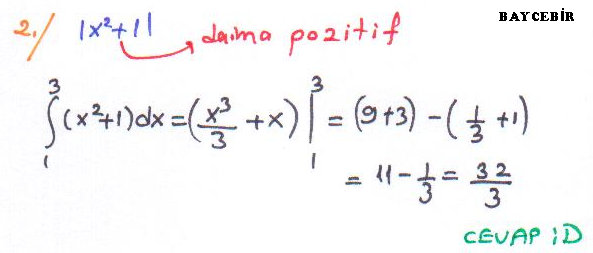 BAYCEBİR
2./ |x²+1| → daima pozitif
∫₁³ (x²+1)dx = (x³/3 + x) |₁³ = (9+3) - (1/3 + 1)
= 11 - 1/3 = 32/3
CEVAP : D